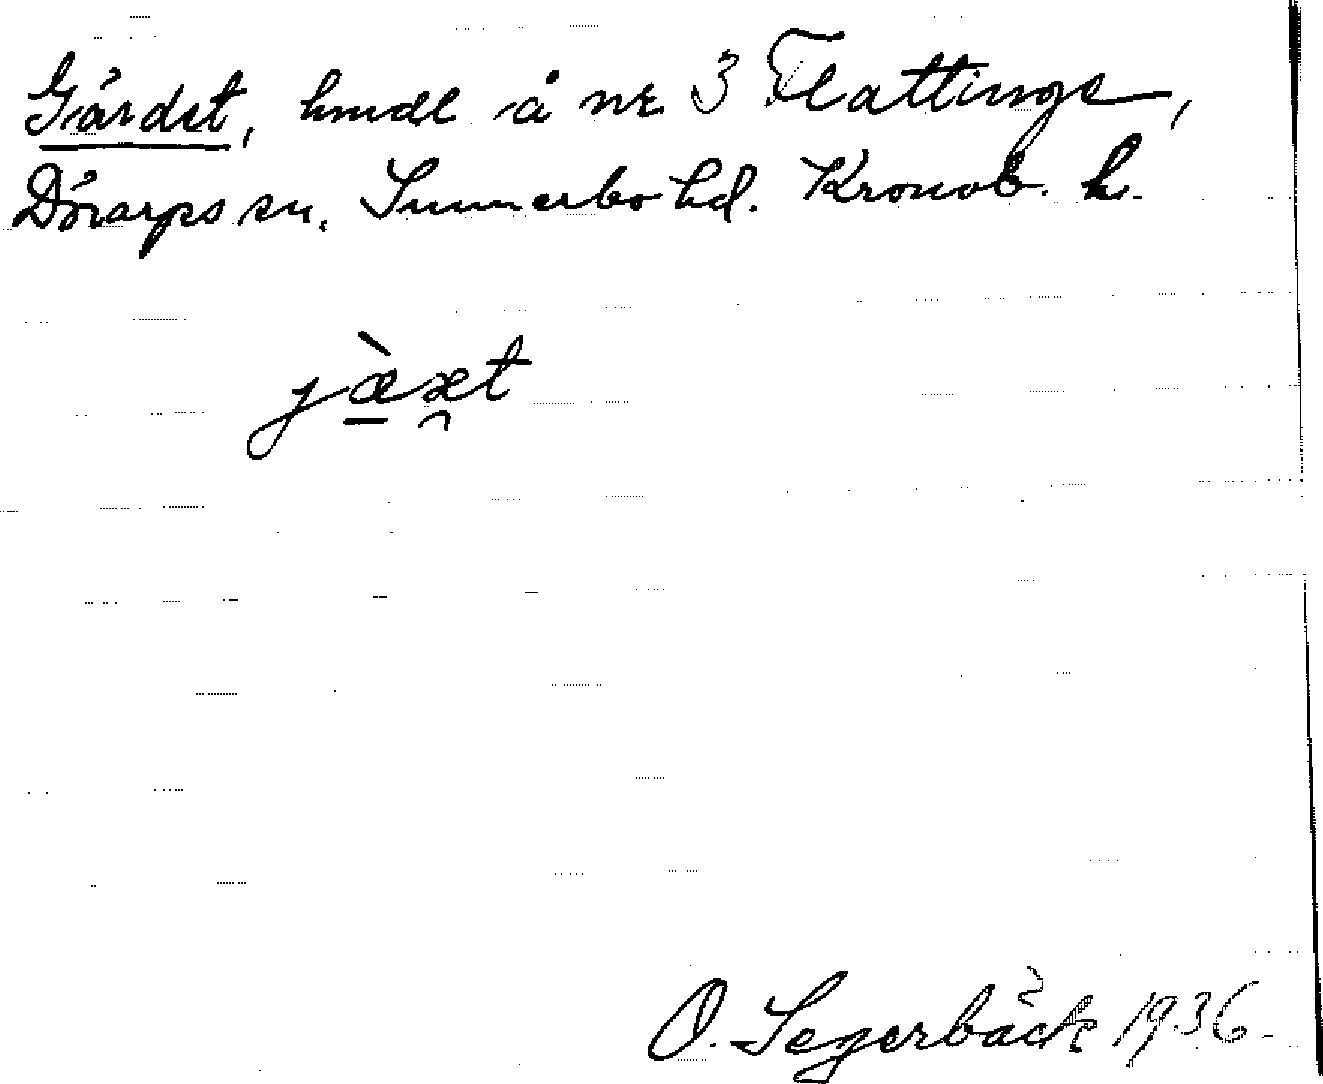 Gärdet, hmdl å nr 3 Flattinge,
Dörarps sn. Sunnerbo hd. Kronob. l.
O. Segerbäck 1936.